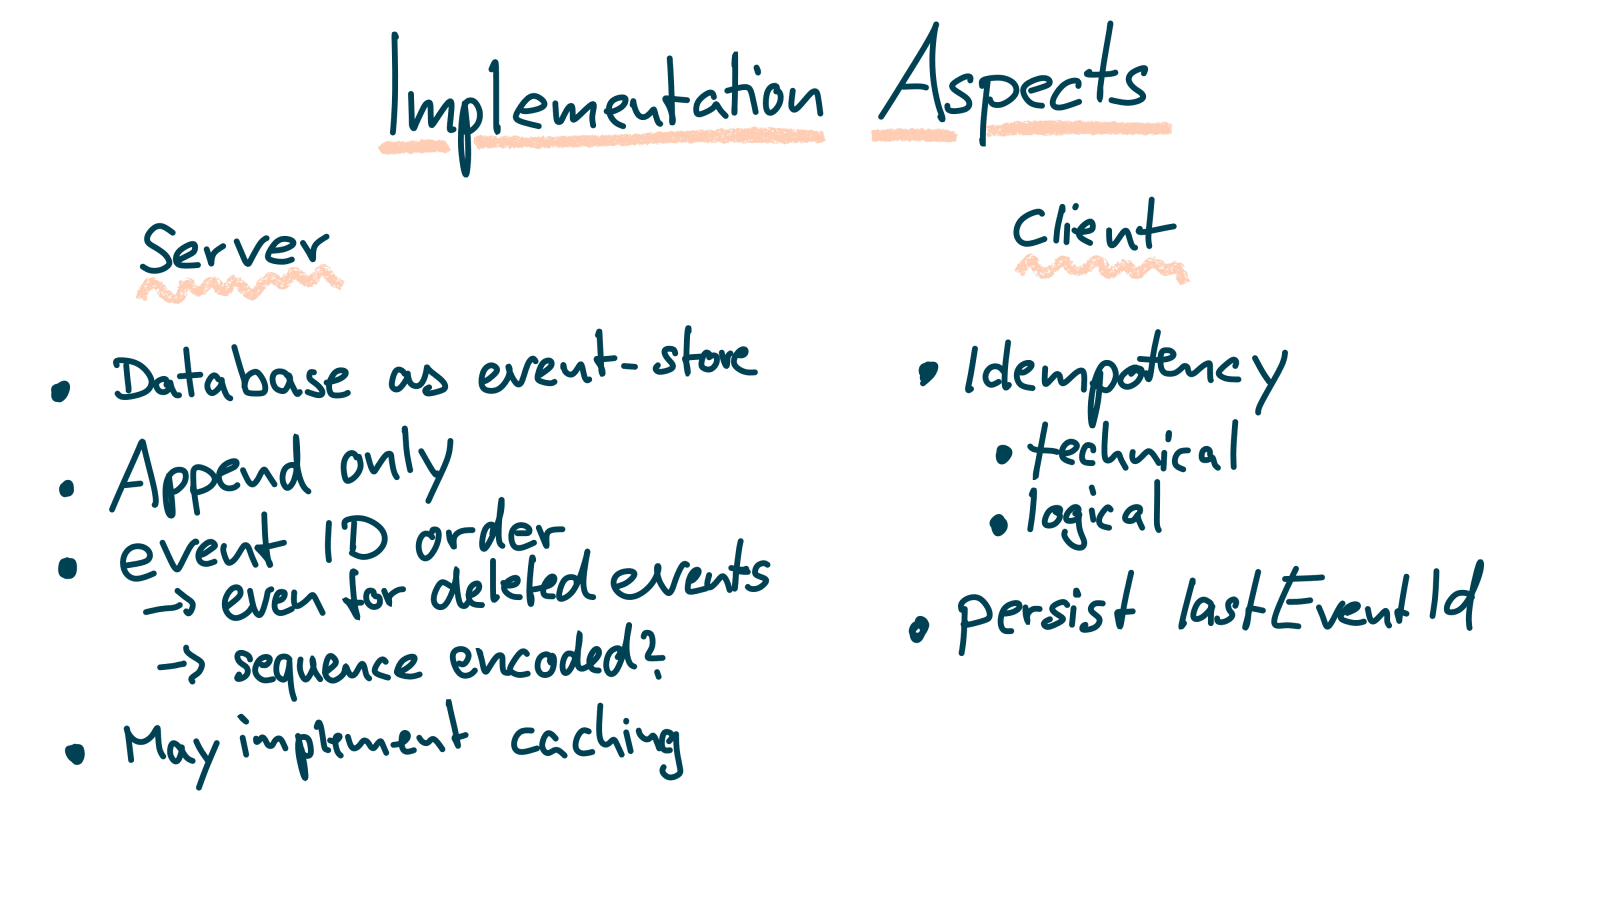 Implementation Aspects
Server
• Database as event-store
• Append only
• event ID order
→ even for deleted events
→ sequence encoded?
• May implement caching
Client
• Idempotency
• technical
• logical
• persist lastEventId